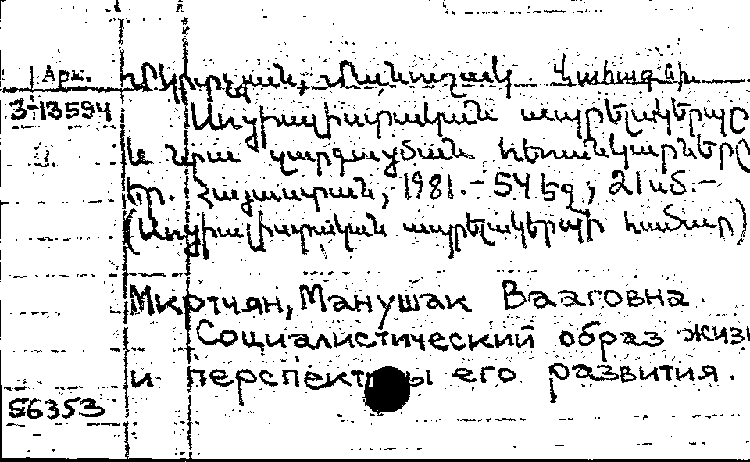 Арк. Մկրտչյան, Մանուշակ Վահագնի
3-13594 Սոցիալիստական ապրելակերպը
և նրա զարգացման հեռանկարները
Եր. Հայաստան, 1981.- 54 էջ, 21 սմ.-
(Սոցիալիստական ապրելակերպի համար)
Мкртчян, Манушак Вааговна.
Социалистический образ жиз
и перспективы его развития.
56353